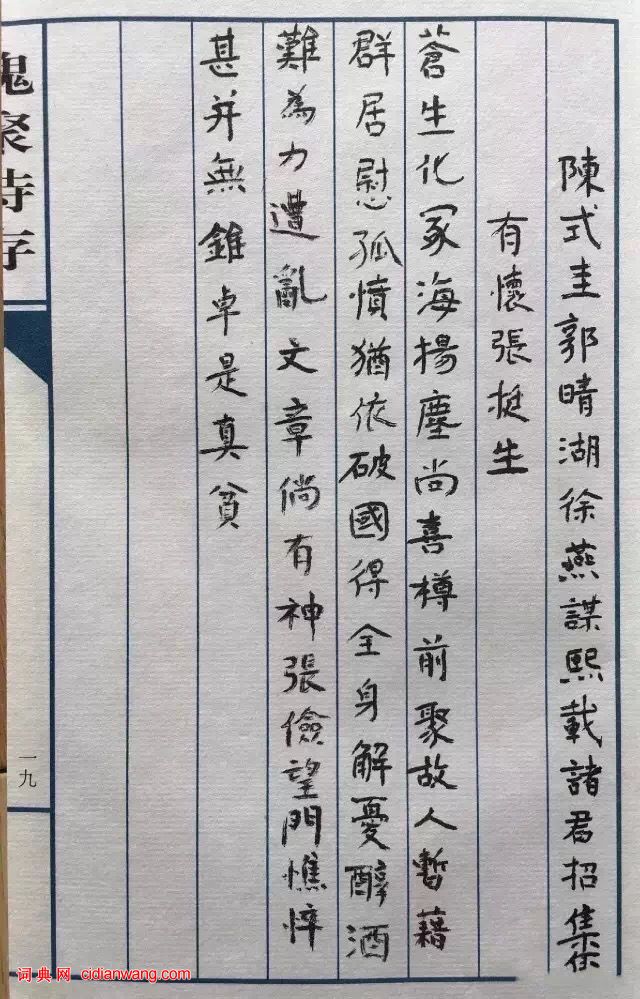 陳式圭郭晴湖徐燕謀熙載諸君招集
有懷張挺生
蒼生化冢海揚塵尚喜樽前聚故人暫藉
群居慰孤憤猶依破國得全身解憂醇酒
難為力遭亂文章倘有神張儉望門憔悴
甚并無錐卓是真貧
槐聚詩存
一九
词典网 cidianwang.com